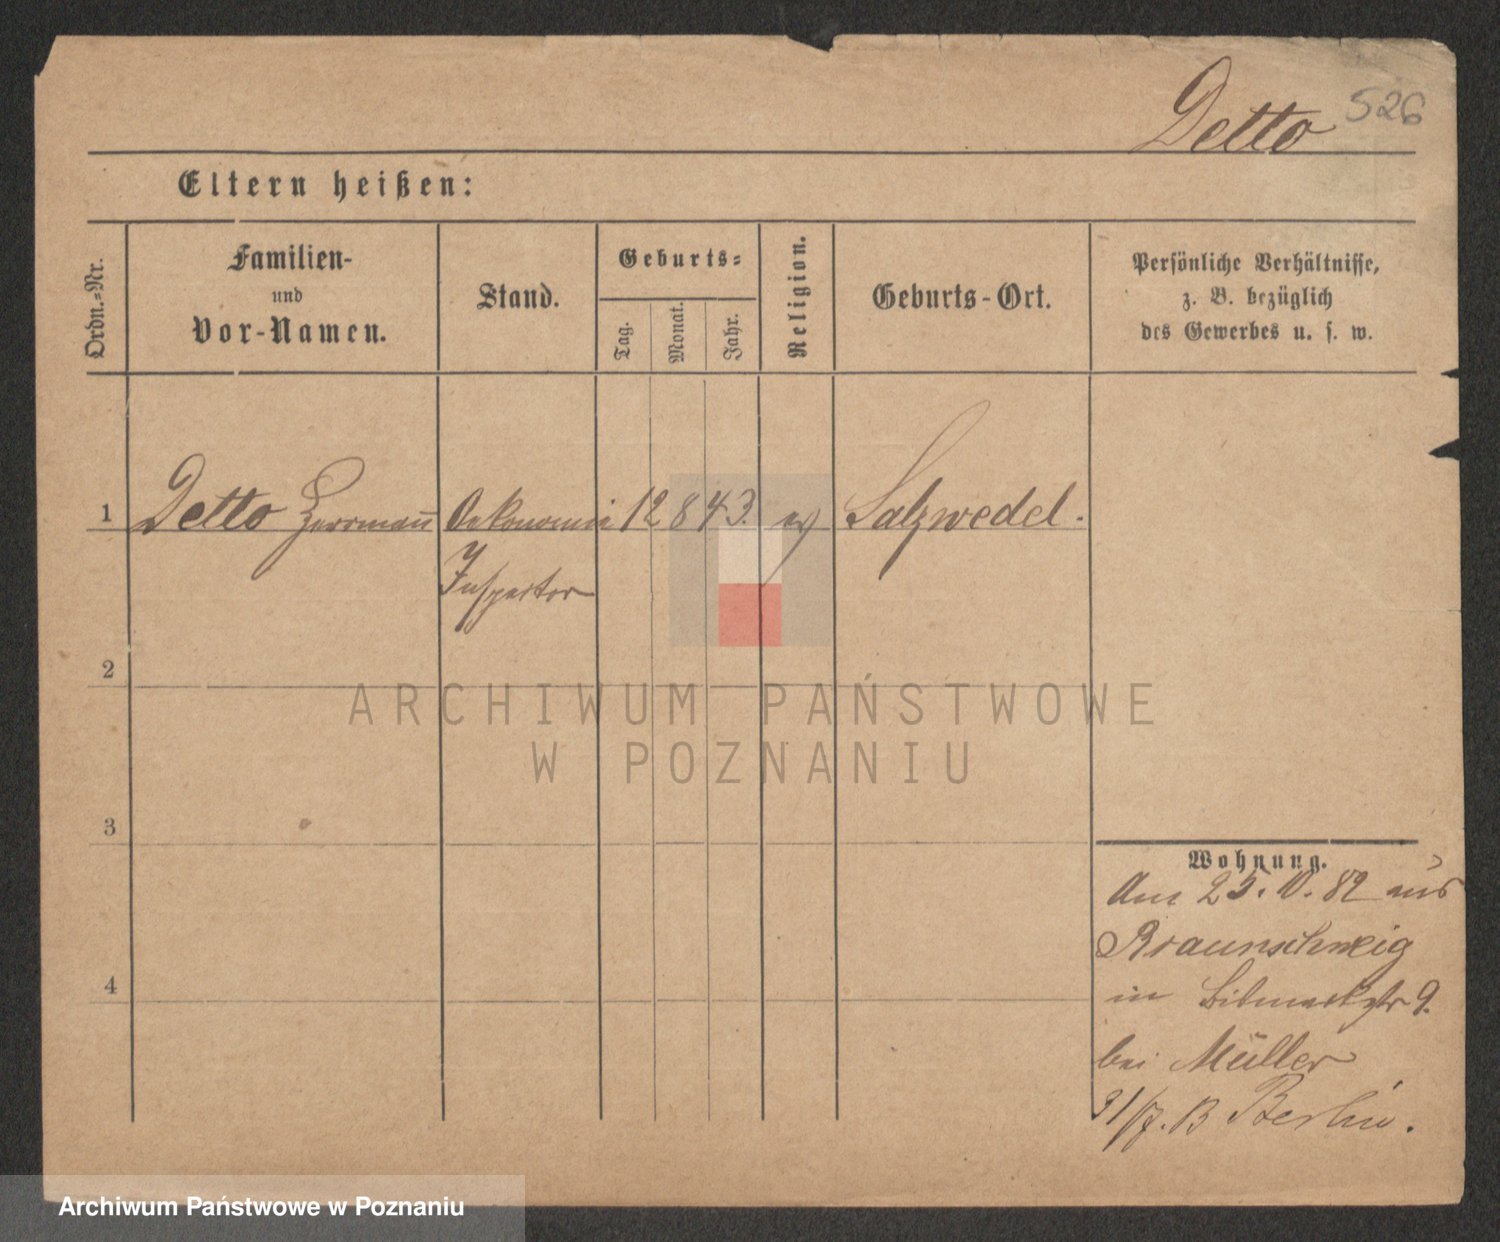 Detto 526
Eltern heißen:
Ordn.-Nr.
Familien-
und
Vor-Namen.
Stand.
Geburts-
Tag.
Monat.
Jahr.
Religion.
Geburts-Ort.
Persönliche Verhältnisse,
z. B. bezüglich
des Gewerbes u. s. w.
1 Detto Herrmann Oekonomie 12 8 43. ev Salzwedel.
Inspector
2
3
4
Wohnung.
Am 25. 10. 82 aus
Braunschweig
in Bismarckstr 9.
bei Müller
31/7. Berlin.
ARCHIWUM PAŃSTWOWE
W POZNANIU
Archiwum Państwowe w Poznaniu